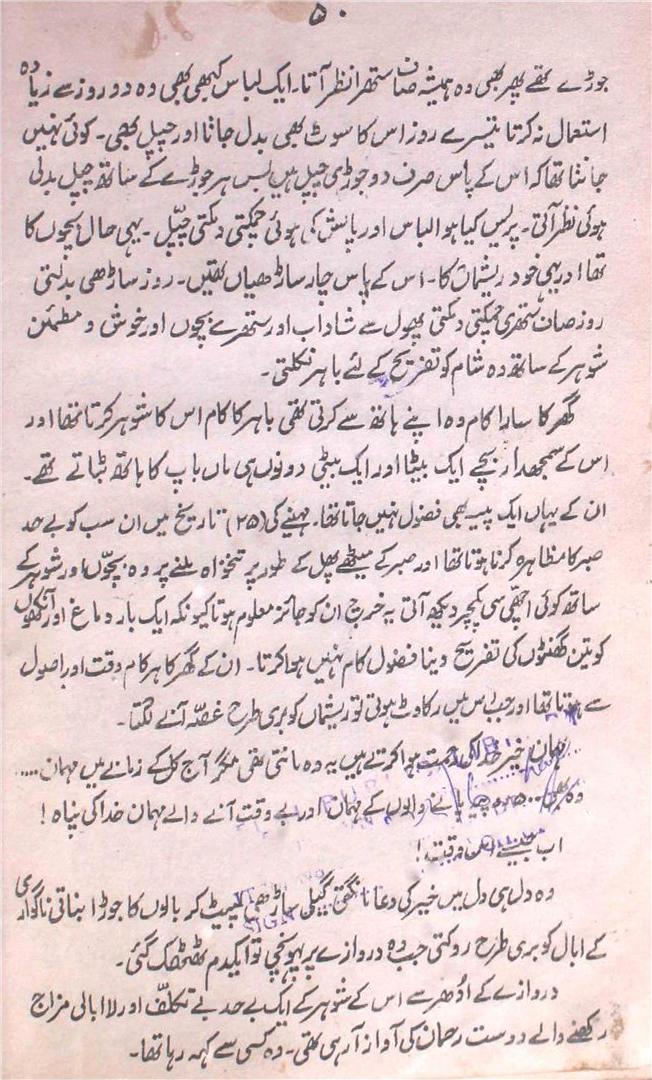 ۵۰
جوڑے تھے پھر بھی وہ ہمیشہ صاف ستھرا نظر آتا۔ ایک لباس کبھی بھی وہ دو روز سے زیادہ
استعمال نہ کرتا تیسرے روز اس کا سوٹ بھی بدل جاتا اور چپل بھی۔ کوئی نہیں
جانتا تھا کہ اس کے پاس صرف دو جوڑی چپل ہیں بس ہر جوڑے کے ساتھ چپل بدلی
ہوئی نظر آتی۔ پریس کیا ہوا لباس اور پالش کی ہوئی چمکتی دمکتی چپّل۔ یہی حال بچوں کا
تھا اور یہی خود ریشماں کا۔ اس کے پاس چار ساڑھیاں تھیں۔ روز ساڑھی بدلتی
روز صاف ستھری چمکتی دمکتی پھول سے شاداب اور ستھرے بچوں اور خوش و مطمئن
شوہر کے ساتھ وہ شام کو تفریح کے لئے باہر نکلتی۔
گھر کا سارا کام وہ اپنے ہاتھ سے کرتی تھی باہر کا کام اس کا شوہر کرتا تھا اور
اس کے سمجھدار بچے ایک بیٹا اور ایک بیٹی دونوں ہی ماں باپ کا ہاتھ بٹاتے تھے۔
ان کے یہاں ایک پیسہ بھی فضول نہیں جاتا تھا۔ مہینے کی (۲۵) تاریخ میں ان سب کو بے حد
صبر کا مظاہرہ کرنا ہوتا تھا اور صبر کے میٹھے پھل کے طور پر تنخواہ ملنے پر وہ بچّوں اور شوہر کے
ساتھ کوئی اچھّی سی پکچر دیکھ آتی یہ خرچ ان کو جائز معلوم ہوتا کیونکہ ایک بار دماغ اور آنکھوں
کو تین گھنٹوں کی تفریح دینا فضول کام نہیں ہوا کرتا۔ ان کے گھر کا ہر کام وقت اور اصول
سے ہوتا تھا اور جب اس میں رکاوٹ ہوتی تو ریشماں کو بری طرح غصّہ آنے لگتا۔
مہمان خیر خدا کی رحمت ہوا کرتے ہیں یہ وہ مانتی تھی مگر آج کل کے زمانے میں مہمان ....
وہ بھی ... والوں کے مہمان اور بے وقت آنے والے مہمان خدا کی پناہ!
اب جیسے اس وقت!
وہ دل ہی دل میں خیر کی دعا مانگتی گیلی ساڑھی لپیٹ کر بالوں کا جوڑا بناتی ناگواری
کے ابال کو بری طرح روکتی جب وہ دروازے پر پہونچی تو ایکدم ٹھٹھک گئی۔
دروازے کے اُدھر سے اس کے شوہر کے ایک بے حد بے تکلّف اور لا ابالی مزاج
رکھنے والے دوست رحمان کی آواز آ رہی تھی۔ وہ کسی سے کہہ رہا تھا۔